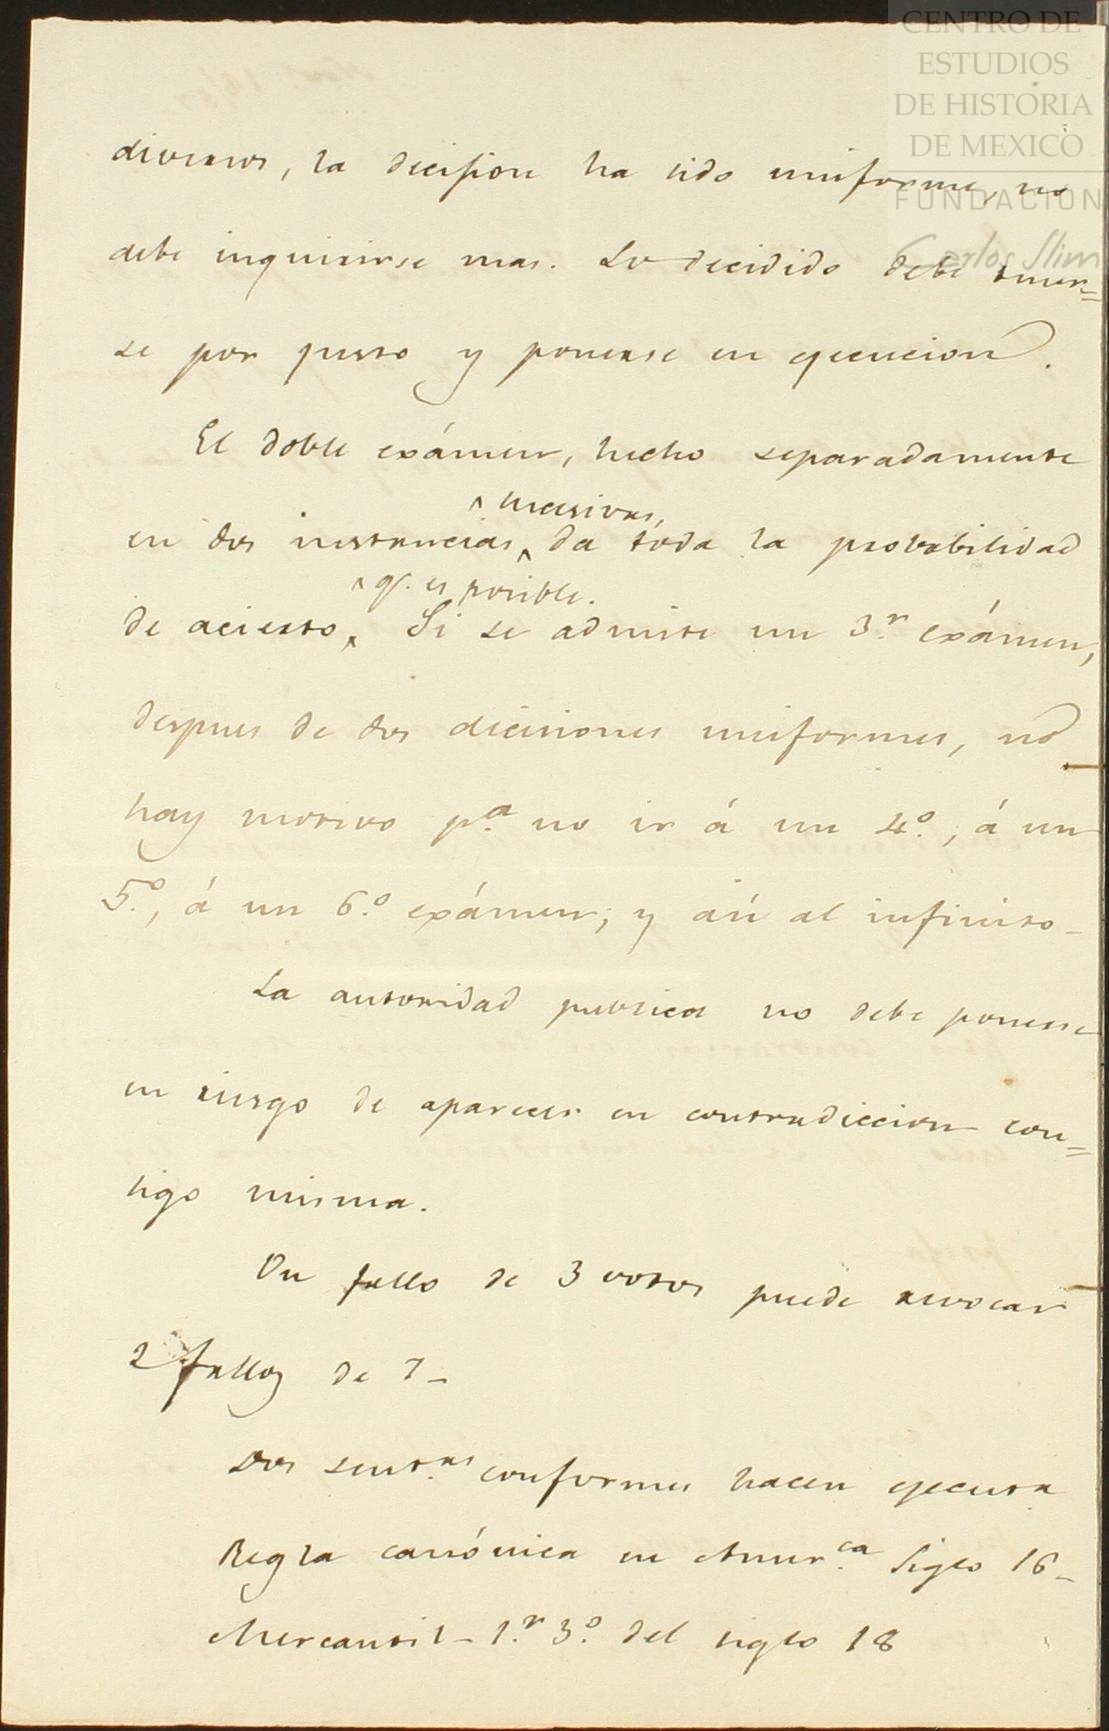 CENTRO DE
ESTUDIOS
DE HISTORIA
DE MEXICO
FUNDACION
Carlos Slim
diversos, la decision ha sido uniforme, no
debe inquirirse mas. Lo decidido debe tener=
se por justo y ponerse en ejecucion.
El doble exámen, hecho separadamente
^ sucesivas,
en dos instancias ^ da toda la probabilidad
^ q.e es posible.
de acierto ^. Si se admite un 3.r exámen,
despues de dos deciciones uniformes, no
hay motivo p.a no ir á un 4.o, á un
5.o, á un 6.o exámen; y aú al infinito_
La autoridad publica no debe ponerse
en riesgo de aparecer en contradiccion con=
sigo misma.
Un fallo de 3 votos puede revocar
2 fallos de 7_
Dos sent.as conformes hacen ejecuta
Regla canónica en Amer.ca Siglo 16_
Mercantil_ 1.r 3.o del siglo 18